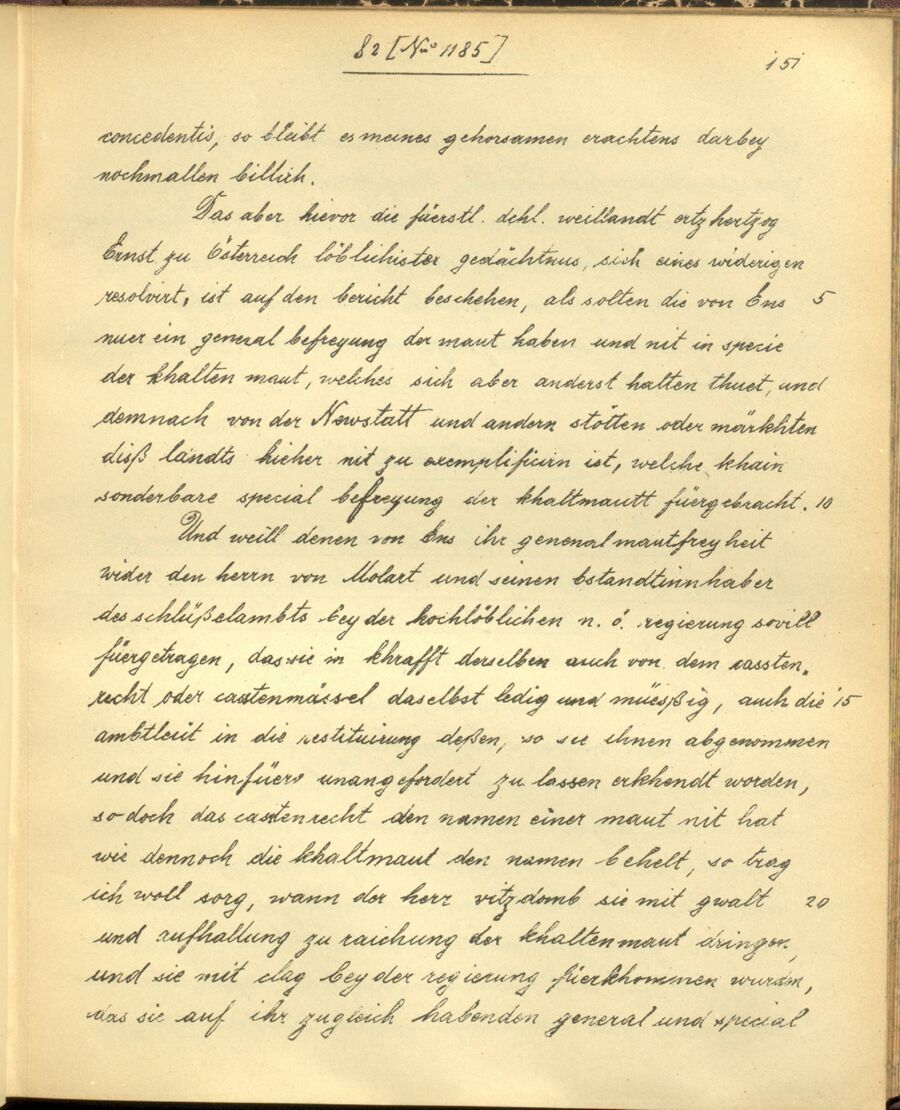 82 [No 1185]
151
concedentis, so bleibt es meines gehorsamen erachtens darbey
nochmallen billich.
Das aber hievor die füerstl. dchl. weillandt ertzhertzog
Ernst zu Österreich löblichister gedächtnus, sich eines widerigen
resolvirt, ist auf den bericht beschehen, als solten die von Ens 5
nuer ein general befreyung der maut haben und nit in spezie
der khalten maut, welches sich aber anderst halten thuet, und
demnach von der Newstatt und andern stötten oder märkhten
diß landts hieher nit zu exemplificirn ist, welche khain
sonderbare special befreyung der khaltmautt füergebracht. 10
Und weill denen von Ens ihr general mautfreyheit
wider den herrn von Molart und seinen bstandtinnhaber
des schlüßelambts bey der hochlöblichen n. ö. regierung sovill
füergetragen, das sie in khrafft derselben auch von dem cassten,
recht oder casstenmässel daselbst ledig und müesßig, auch die 15
ambtleüt in die restituirung deßen, so sie ihnen abgenommen
und sie hinfüero unangefordert zu lassen erkhendt worden,
so doch das casstenrecht den namen einer maut nit hat
wie dennoch die khaltmaut den namen behelt, so trag
ich woll sorg, wann der herr vitzdomb sie mit gwalt 20
und aufhaltung zu raichung der khaltenmaut dringen,
und sie mit clag bey der regierung füerkhommen wurden,
das sie auf ihr zugleich habenden general und special